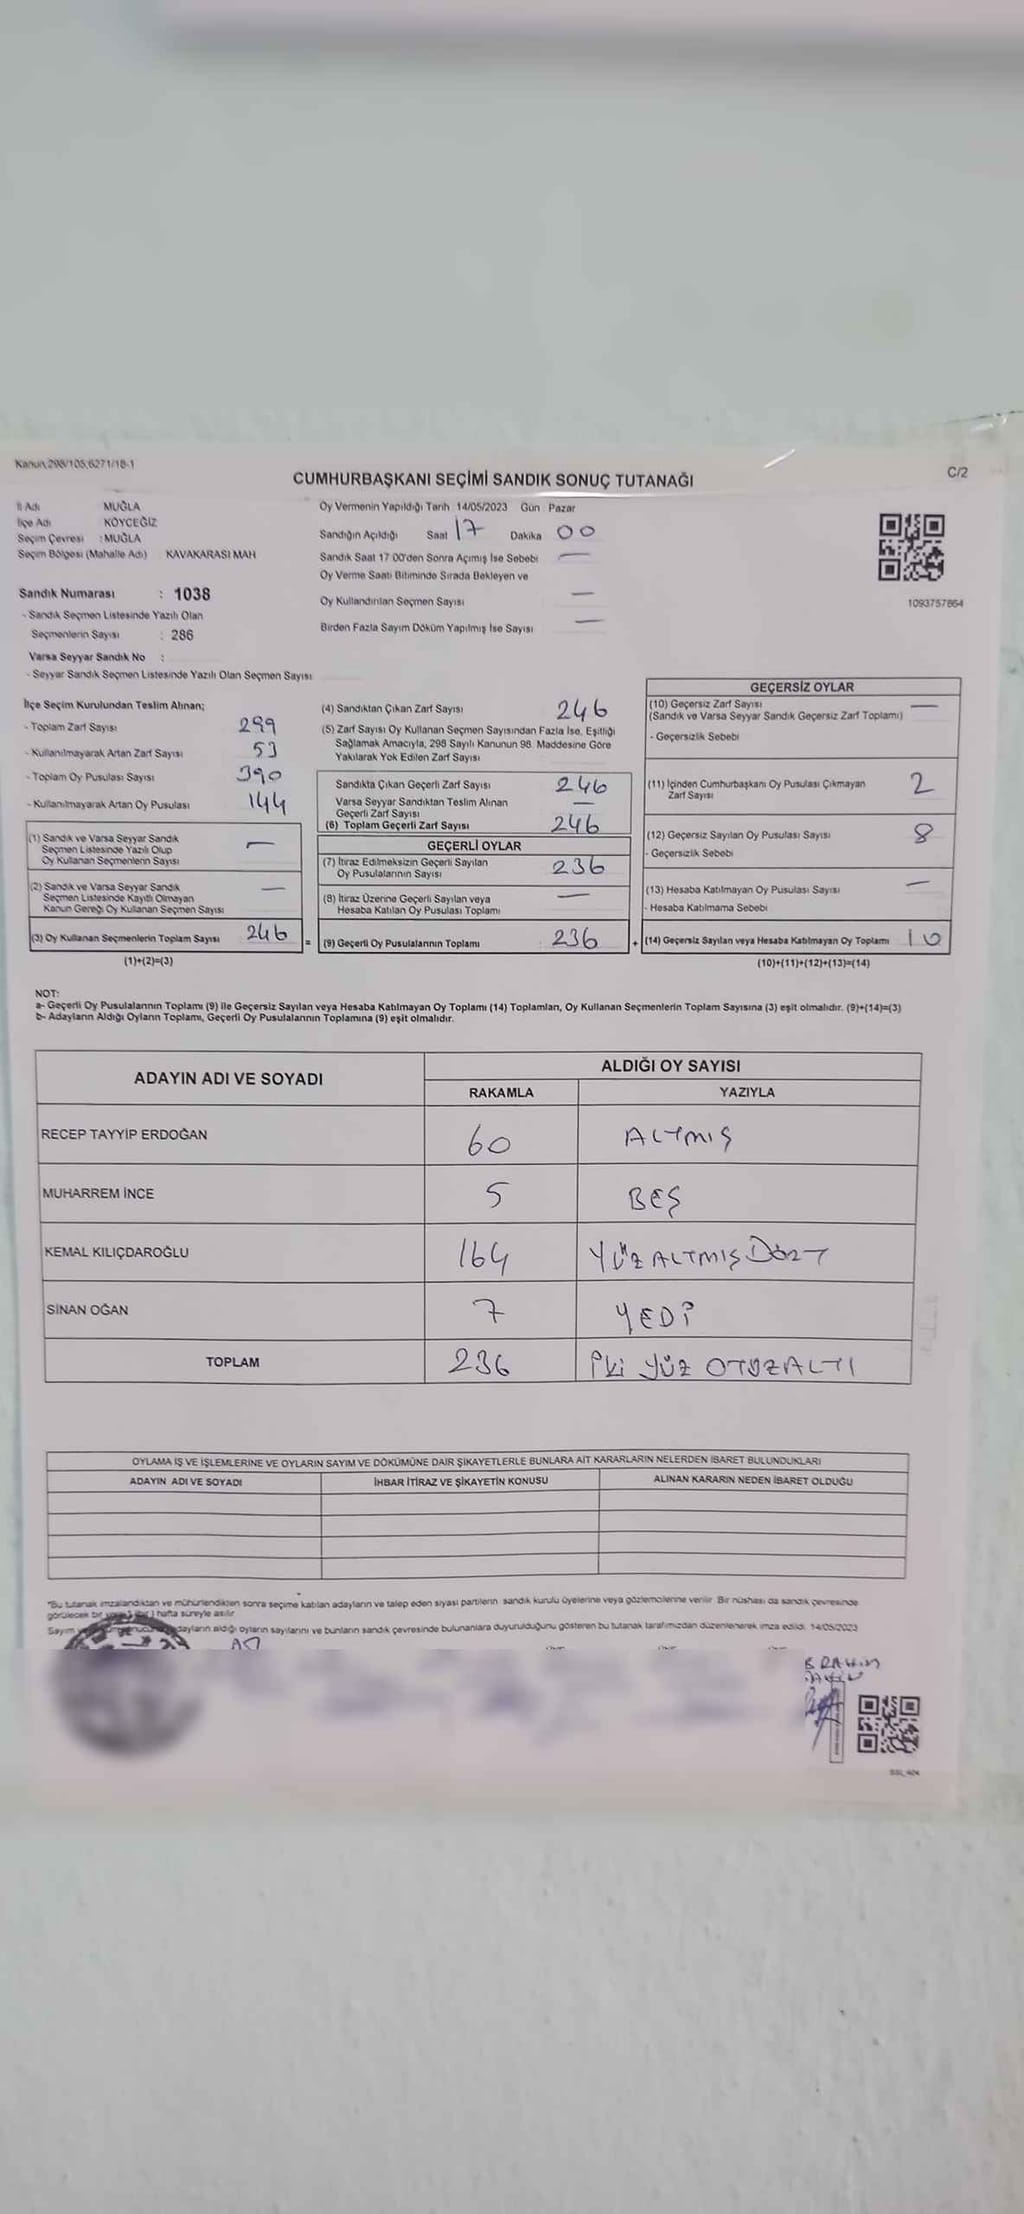 Kanun,298/105;6271/18-1
C/2
CUMHURBAŞKANI SEÇİMİ SANDIK SONUÇ TUTANAĞI
İl Adı MUĞLA
İlçe Adı KÖYCEĞİZ
Seçim Çevresi : MUĞLA
Seçim Bölgesi (Mahalle Adı) KAVAKARASI MAH
Sandık Numarası : 1038
- Sandık Seçmen Listesinde Yazılı Olan
Seçmenlerin Sayısı : 286
Varsa Seyyar Sandık No :
- Seyyar Sandık Seçmen Listesinde Yazılı Olan Seçmen Sayısı
Oy Vermenin Yapıldığı Tarih 14/05/2023 Gün Pazar
Sandığın Açıldığı Saat 17 Dakika 00
Sandık Saat 17:00'den Sonra Açımış İse Sebebi —
Oy Verme Saati Bitiminde Sırada Bekleyen ve
Oy Kullandırılan Seçmen Sayısı —
Birden Fazla Sayım Döküm Yapılmış İse Sayısı —
1093757864
İlçe Seçim Kurulundan Teslim Alınan;
- Toplam Zarf Sayısı 299
- Kullanılmayarak Artan Zarf Sayısı 53
- Toplam Oy Pusulası Sayısı 390
- Kullanılmayarak Artan Oy Pusulası 144
(1) Sandık ve Varsa Seyyar Sandık
Seçmen Listesinde Yazılı Olup
Oy Kullanan Seçmenlerin Sayısı —
(2) Sandık ve Varsa Seyyar Sandık
Seçmen Listesinde Kayıtlı Olmayan
Kanun Gereği Oy Kullanan Seçmen Sayısı —
(3) Oy Kullanan Seçmenlerin Toplam Sayısı 246
(1)+(2)=(3)
(4) Sandıktan Çıkan Zarf Sayısı 246
(5) Zarf Sayısı Oy Kullanan Seçmen Sayısından Fazla İse, Eşitliği
Sağlamak Amacıyla, 298 Sayılı Kanunun 98. Maddesine Göre
Yakılarak Yok Edilen Zarf Sayısı
Sandıkta Çıkan Geçerli Zarf Sayısı 246
Varsa Seyyar Sandıktan Teslim Alınan
Geçerli Zarf Sayısı —
(6) Toplam Geçerli Zarf Sayısı 246
GEÇERLİ OYLAR
(7) İtiraz Edilmeksizin Geçerli Sayılan
Oy Pusulalarının Sayısı 236
(8) İtiraz Üzerine Geçerli Sayılan veya
Hesaba Katılan Oy Pusulası Toplamı —
= (9) Geçerli Oy Pusulalarının Toplamı : 236
GEÇERSİZ OYLAR
(10) Geçersiz Zarf Sayısı —
(Sandık ve Varsa Seyyar Sandık Geçersiz Zarf Toplamı)
- Geçersizlik Sebebi
(11) İçinden Cumhurbaşkanı Oy Pusulası Çıkmayan
Zarf Sayısı 2
(12) Geçersiz Sayılan Oy Pusulası Sayısı 8
- Geçersizlik Sebebi
(13) Hesaba Katılmayan Oy Pusulası Sayısı —
- Hesaba Katılmama Sebebi
+ (14) Geçersiz Sayılan veya Hesaba Katılmayan Oy Toplamı 10
(10)+(11)+(12)+(13)=(14)
NOT:
a- Geçerli Oy Pusulalarının Toplamı (9) ile Geçersiz Sayılan veya Hesaba Katılmayan Oy Toplamı (14) Toplamları, Oy Kullanan Seçmenlerin Toplam Sayısına (3) eşit olmalıdır. (9)+(14)=(3)
b- Adayların Aldığı Oyların Toplamı, Geçerli Oy Pusulalarının Toplamına (9) eşit olmalıdır.
ADAYIN ADI VE SOYADI
ALDIĞI OY SAYISI
RAKAMLA YAZIYLA
RECEP TAYYİP ERDOĞAN 60 ALTMIŞ
MUHARREM İNCE 5 BEŞ
KEMAL KILIÇDAROĞLU 164 YÜZ ALTMIŞ DÖRT
SİNAN OĞAN 7 YEDİ
TOPLAM 236 İki YÜZ OTUZALTI
OYLAMA İŞ VE İŞLEMLERİNE VE OYLARIN SAYIM VE DÖKÜMÜNE DAİR ŞİKAYETLERLE BUNLARA AİT KARARLARIN NELERDEN İBARET BULUNDUKLARI
ADAYIN ADI VE SOYADI İHBAR İTİRAZ VE ŞİKAYETİN KONUSU ALINAN KARARIN NEDEN İBARET OLDUĞU
*Bu tutanak imzalandıktan ve mühürlendikten sonra seçime katılan adayların ve talep eden siyasi partilerin sandık kurulu üyelerine veya gözlemcilerine verilir. Bir nüshası da sandık çevresinde
görülecek bir yere 1 (bir) hafta süreyle asılır.
Sayım adayların aldığı oyların sayılarını ve bunların sandık çevresinde bulunanlara duyurulduğunu gösteren bu tutanak tarafımızdan düzenlenerek imza edildi. 14/05/2023